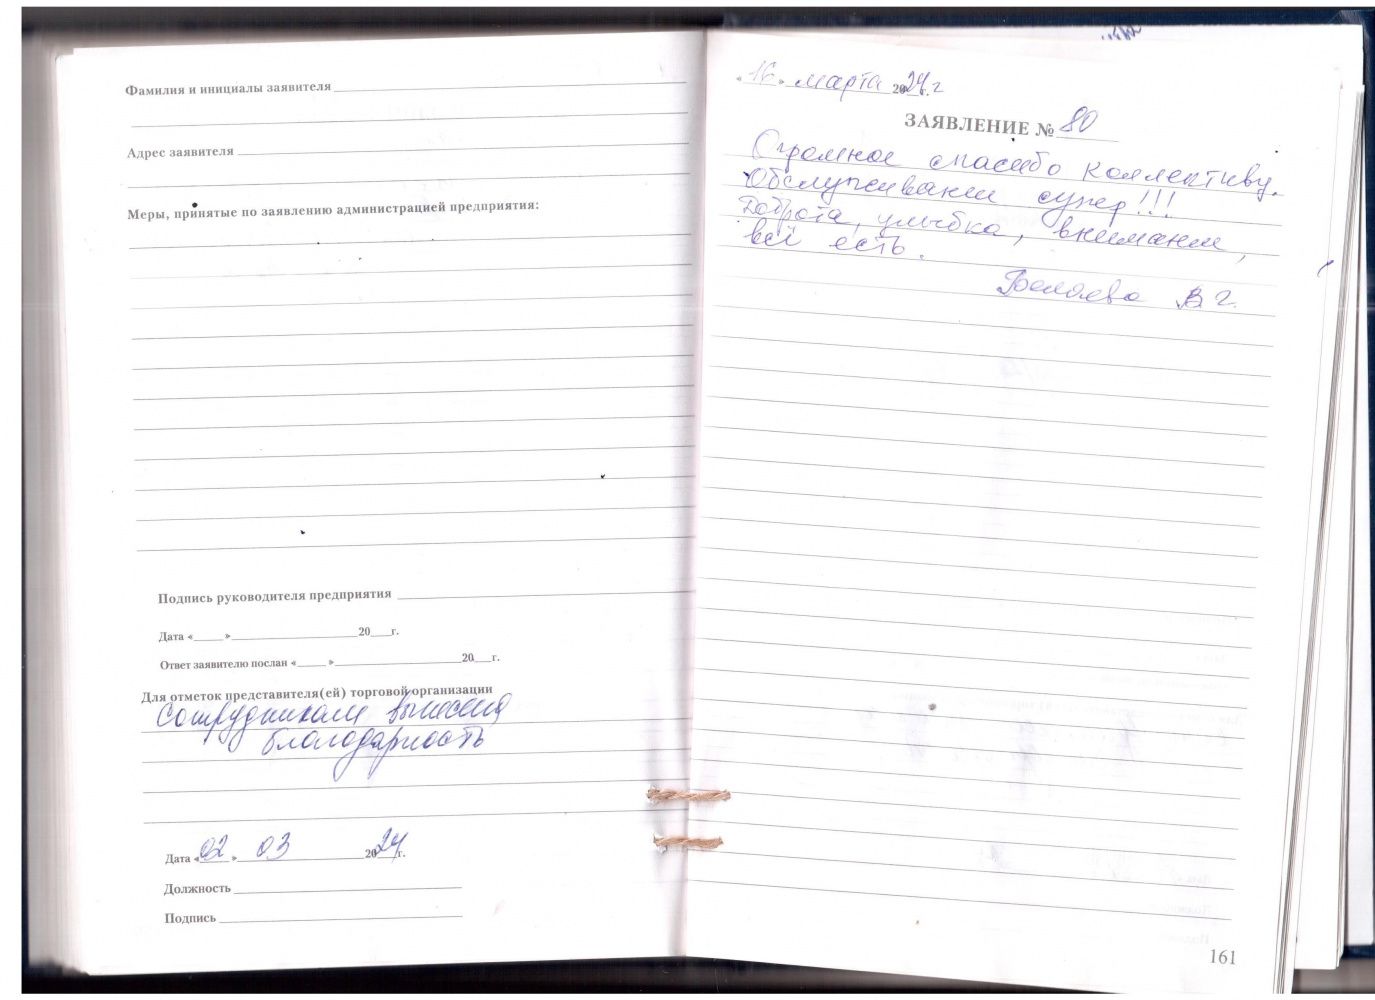 Фамилия и инициалы заявителя
Адрес заявителя
Меры, принятые по заявлению администрацией предприятия:
Подпись руководителя предприятия
Дата « » 20 г.
Ответ заявителю послан « » 20 г.
Для отметок представителя(ей) торговой организации
Сотрудникам вынесена
благодарность
Дата «02» 03 2024 г.
Должность
Подпись
«16» марта 2024 г. г
ЗАЯВЛЕНИЕ № 80
Огромное спасибо коллективу.
Обслуживание супер!!!
Доброта, улыбка, внимание,
всё есть.
Беляева В Г.
161